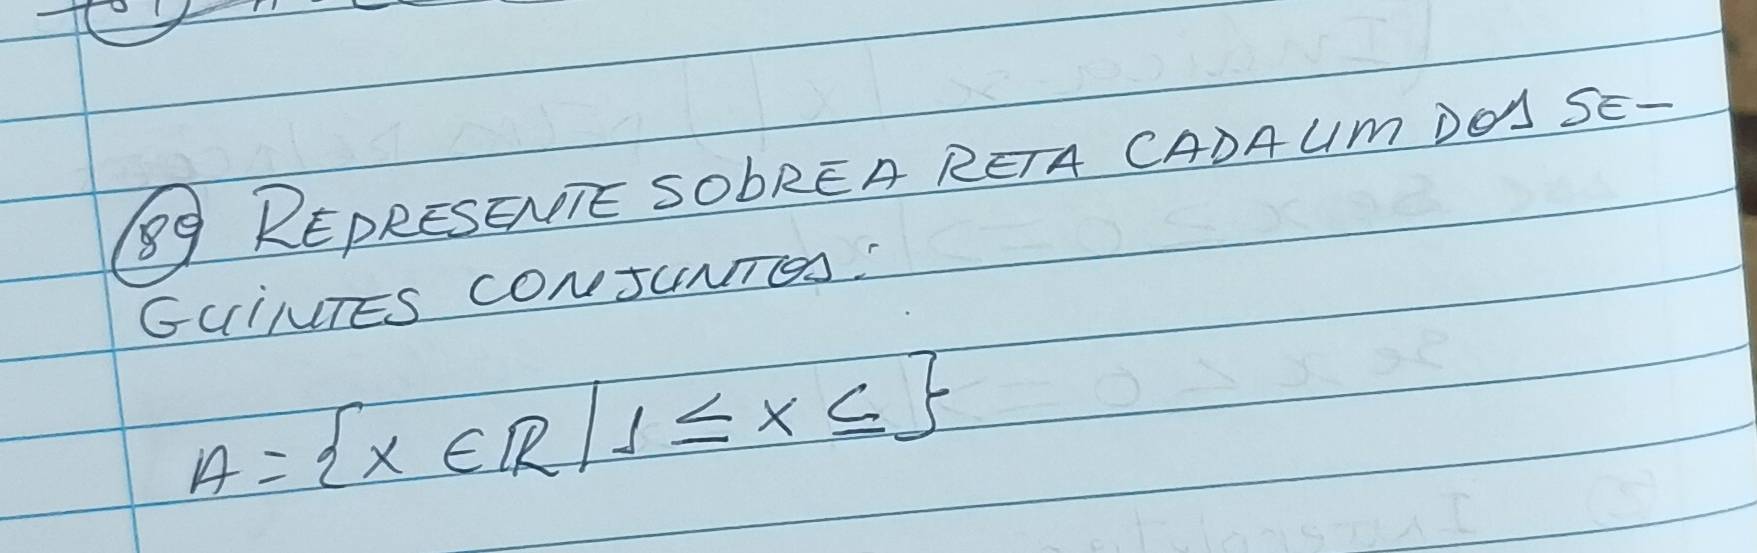 89 REPRESENTE SOBRE A RETA CADA UM DOS SE-
GUINTES CONJUNTOS:
A = {x ∈ ℝ | 1 ≤ x ≤ }